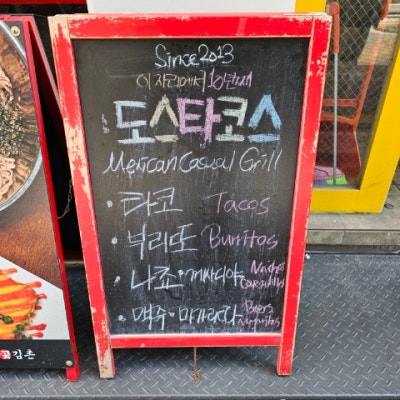 Since 2013
이 자리에서 10년째
도스타코스
Mexican Casual Grill
· 타코 Tacos
· 부리또 Burritos
· 나쵸 · 께사디야 Nachos Quesadillas
· 맥주 · 마가리타 Beers Margaritas
김촌